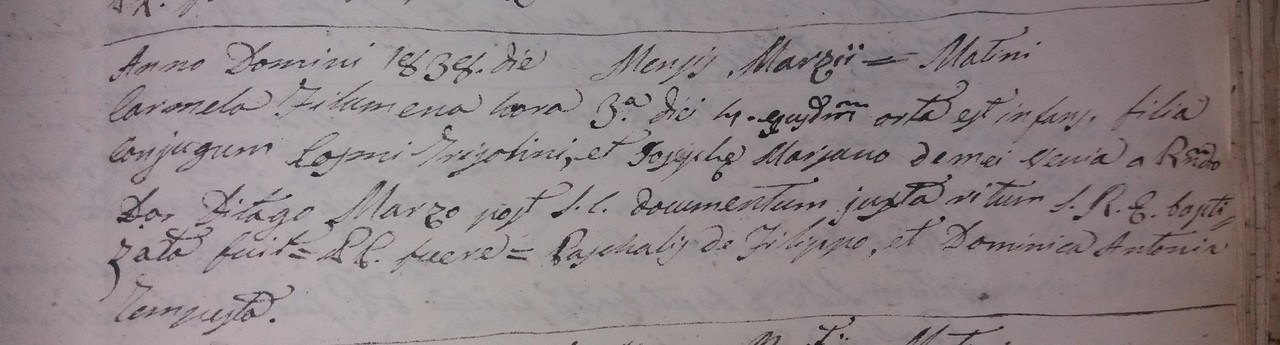 Anno Domini 1838. die Mensis Marzii = Matini
Carmela Filumena hora 3.a diei 4. ejusdm orta est infans, filia
Conjugum Cosmi Frisolini, et Josephe Marsano de mei venia a Rndo
D. Marzo post S. C. documentum juxta ritum S. R. E. bapti-
zata fuit = PP. fuere = Paschalis de Filippo, et Dominica Antonia
Tempesta.